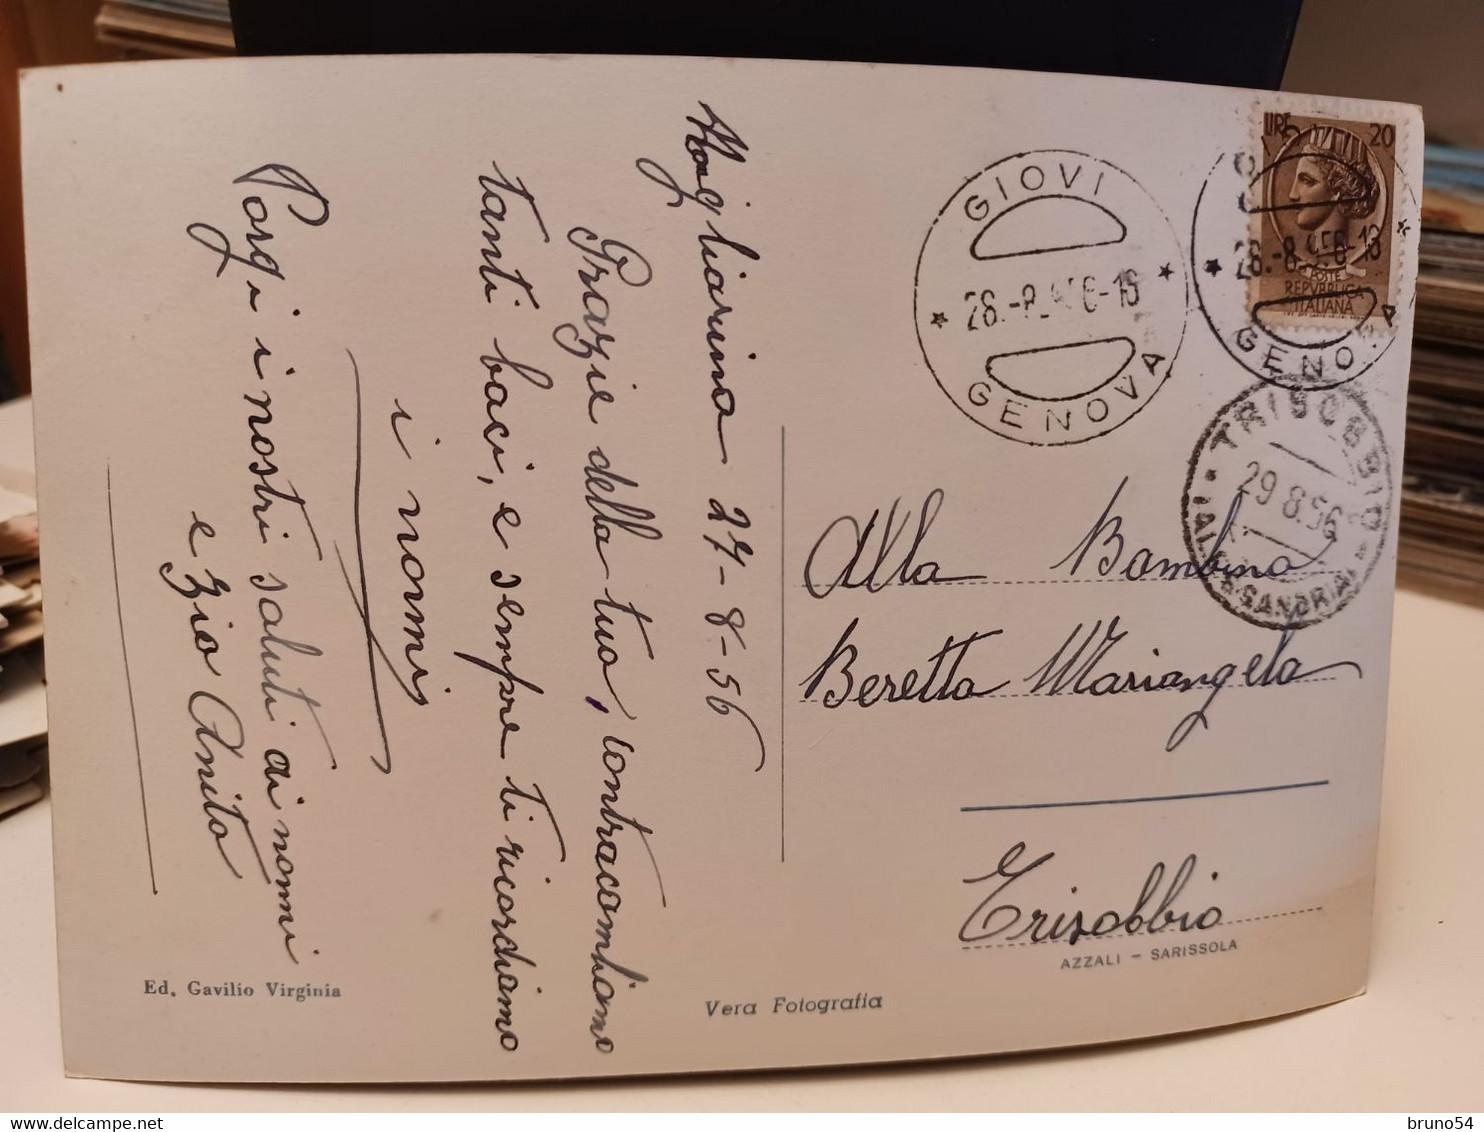 Migliarina 27-8-56
Grazie della tua, contracambiamo
tanti baci, e sempre ti ricordiamo
i nonni
Porgi i nostri saluti ai nonni
e Zia Anita
Ed. Gavilio Virginia
Vera Fotografia
GIOVI
28.-8.956-18
GENOVA
LIRE 20
POSTE
REPVBBLICA
ITALIANA
28.-8.956-18
GENOVA
TRISOBBIO
29.8.56
(ALESSANDRIA)
Alla Bambina
Beretta Mariangela
Trisobbio
AZZALI - SARISSOLA
bruno54